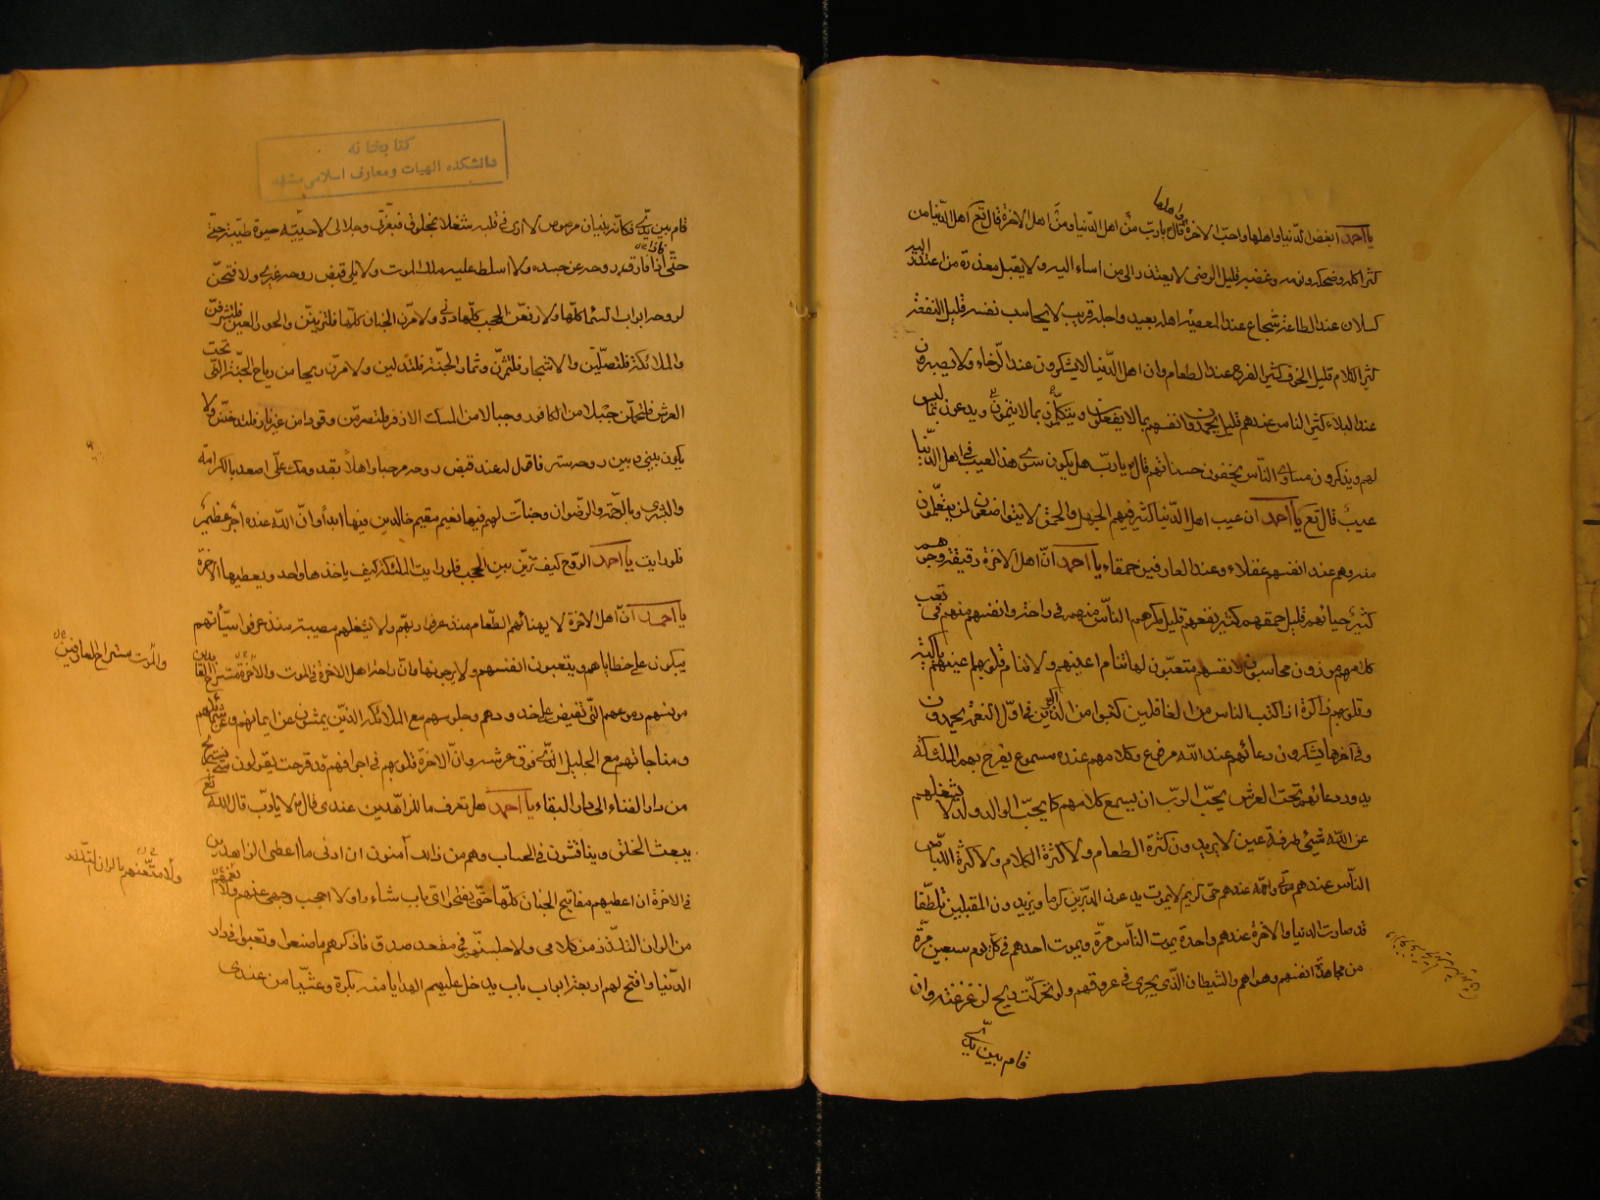 واهلها
يا احمد ابغض الدنيا واهلها واحب الاخرة قال يا رب من اهل الدنيا ومن اهل الاخرة قال تع اهل الدنيا من
كثر اكله وضحكه ونومه وغضبه قليل الرضى لا يعتذر الى من اساء اليه ولا يقبل معذرة من اعتذر اليه
كسلان عند الطاعة شجاع عند المعصية امله بعيد واجله قريب لا يحاسب نفسه قليل النفقة
كثير الكلام قليل الخوف كثير الفرح عند الطعام وان اهل الدنيا لا يشكرون عند الرخاء ولا يصبرون
عند البلاء كثير الناس عندهم قليل يحمدون انفسهم بما لا يفعلون ويتكلمون بما لا يتمنون ويدعون بما ليس
لهم ويذكرون مساوى الناس يخفون حسناتهم قال يا رب هل يكون سوى هذا العيب في اهل الدنيا
عيب قال تع يا احمد ان عيب اهل الدنيا كثير فيهم الجهل والحمق لا يتواضعون لمن يتعلمون
منه وهم عند انفسهم عقلاء وعند العارفين حمقاء يا احمد ان اهل الاخرة رقيقة وجوههم
كثير حيائهم قليل حمقهم كثير نفعهم قليل مكرهم الناس منهم في راحة وانفسهم منهم في تعب
كلامهم موزون محاسبون لانفسهم متعبون لها تنام اعينهم ولا تنام قلوبهم عينهم باكية
وقلوبهم ذاكرة اذا كتب الناس من الغافلين كتبوا من الذاكرين في اول النعمة يحمدون
وفي آخرها يشكرون دعائهم عند الله مرفوع وكلامهم عنده مسموع يفرح بهم الملئكة
يدور دعائهم تحت العرش يحب الرب ان يسمع كلامهم كما يحب الوالد ولده لا يشغلهم
عن الله شيئ طرفة عين لا يريدون كثرة الطعام ولا كثرة الكلام ولا كثرة اللباس
الناس عندهم موتى والله عندهم حي كريم لا يموت يدعون المدبرين كرما ويزيدون المقبلين تلطفا
قد صارت الدنيا والاخرة عندهم واحدة يموت الناس مرة ويموت احدهم في كل يوم سبعين مرة
من مجاهدة انفسهم وهواهم والشيطان الذى يجرى في عروقهم ولو تحركت ريح لزعزعته وان
قام بين يدي
كتابخانه
دانشكده الهيات ومعارف اسلامى مشهد
قام بين يدي فكانه بنيان مرصوص لا ارى في قلبه شغلا بمخلوق فبعزتي وجلالى لاحيينه حيوة طيبة حتى
حتى اذا فارق روحه عن جسده ولا اسلط عليه ملك الموت ولا يلي قبض روحه غيرى ولافتحن
لروحه ابواب السماء كلها ولارفعن الحجب كلها دوني ولامرن الجنان كلها فلتزينن والحور العين فلتشرقن
والملائكة فلتصلين والاشجار فلتثمرن وثمار الجنة فلتدلين ولامرن ريحا من رياح الجنة التى تحت
العرش فلتحملن جبلا من الكافور وجبالا من المسك الاذفر فلتضرمن وقودا من غير نار فلتدخنن ولا
يكون بيني وبين روحه ستر فاقول له عند قبض روحه مرحبا واهلا بقدومك علي اصعد بالكرامة
والبشرى وبالرحمة والرضوان وجنات لهم فيها نعيم مقيم خالدين فيها ابدا وان الله عنده اجر عظيم
فلو رايت يا احمد الروح كيف تزين بين الحجب فلو رايت الملئكة كيف ياخذها واحد ويعطيها الاخرة
يا احمد ان اهل الاخرة لا يهنائهم الطعام منذ عرفوا ربهم ولا يشغلهم مصيبة منذ عرفوا سيأتهم
يبكون على خطاياهم ويتعبون انفسهم ولا يريحونها وان راحة اهل الاخرة في الموت والاخرة مستراح العابدين
والموت مستراح العارفين
مونسهم دموعهم التى تفيض على خدودهم وجلوسهم مع الملائكة الذين يمشون عن ايمانهم وعن شمائلهم
ومناجاتهم مع الجليل الذى فوق عرشه وان الاخرة قلوبهم في اجوافهم قد قرحت يقولون متى نستريح
من دار الفناء الى دار البقاء يا احمد هل تعرف ما للزاهدين عندى قال لا يا رب قال الله تع
يبعث الخلق ويناقشون في الحساب وهم من ذلك آمنون ان ادنى ما اعطى الزاهدين
في الاخرة ان اعطيهم مفاتيح الجنان كلها حتى يفتحوا اى باب شاءوا ولا احجب وجهى عنهم ولا
من الوان التلذذ من كلامى ولاجلسنهم في مقعد صدق فاذكرهم ما صنعوا وتعبوا في دار
الدنيا وافتح لهم اربعة ابواب باب يدخل عليهم الهدايا منه بكرة وعشيا من عندى